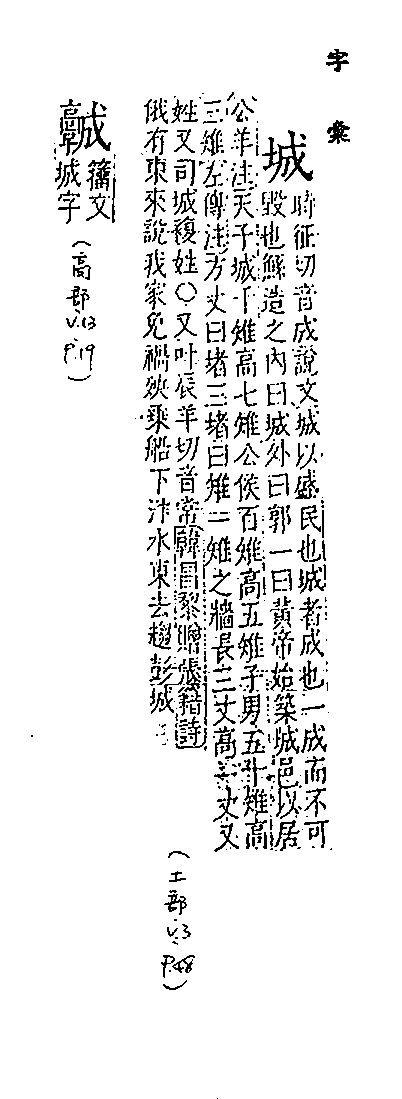 字彙
城
時征切音成說文城以盛民也城者成也一成而不可
毀也鯀造之內曰城外曰郭一曰黃帝始築城邑以居
公羊注天子城千雉高七雉公侯百雉高五雉子男五十雉高
三雉左傳注方丈曰堵三堵曰雉一雉之牆長三丈高一丈又
姓又司城複姓○又叶辰羊切音常韓昌黎贈張籍詩
俄有東來說我家免禍殃乘船下汴水東去趨彭城
(土部 V.3 P.48)
籀文
城字
(高部 V.13 P.19)